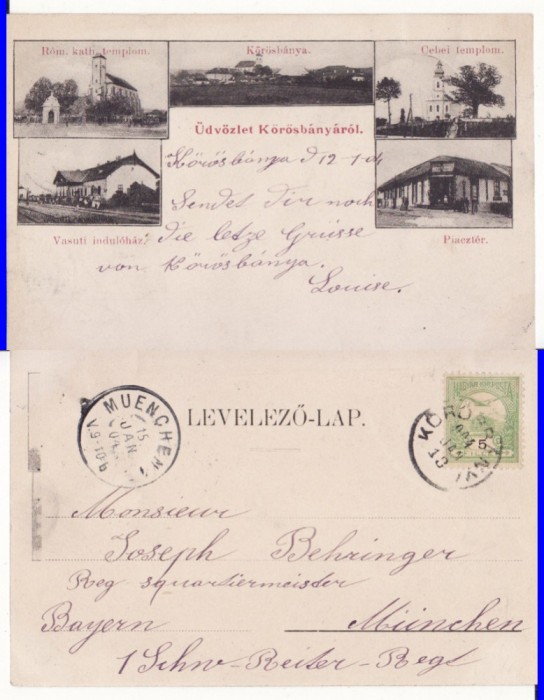 Róm. kath. templom.
Kőrösbánya.
Cebei templom.
Üdvözlet Kőrösbányáról.
Kőrösbánya d 12-1-04
Sendet dir noch
die letze Grüsse
von Kőrösbánya.
Louise.
Vasuti indulóház.
Piacztér.
MUENCHEN
15
JAN
V.9-10
LEVELEZŐ-LAP.
MAGYAR KIR. POSTA
5
KŐRÖS
13
Monsieur
Joseph Behringer
Reg squartiermeister
Bayern München
1 Schw-Reiter-Regt